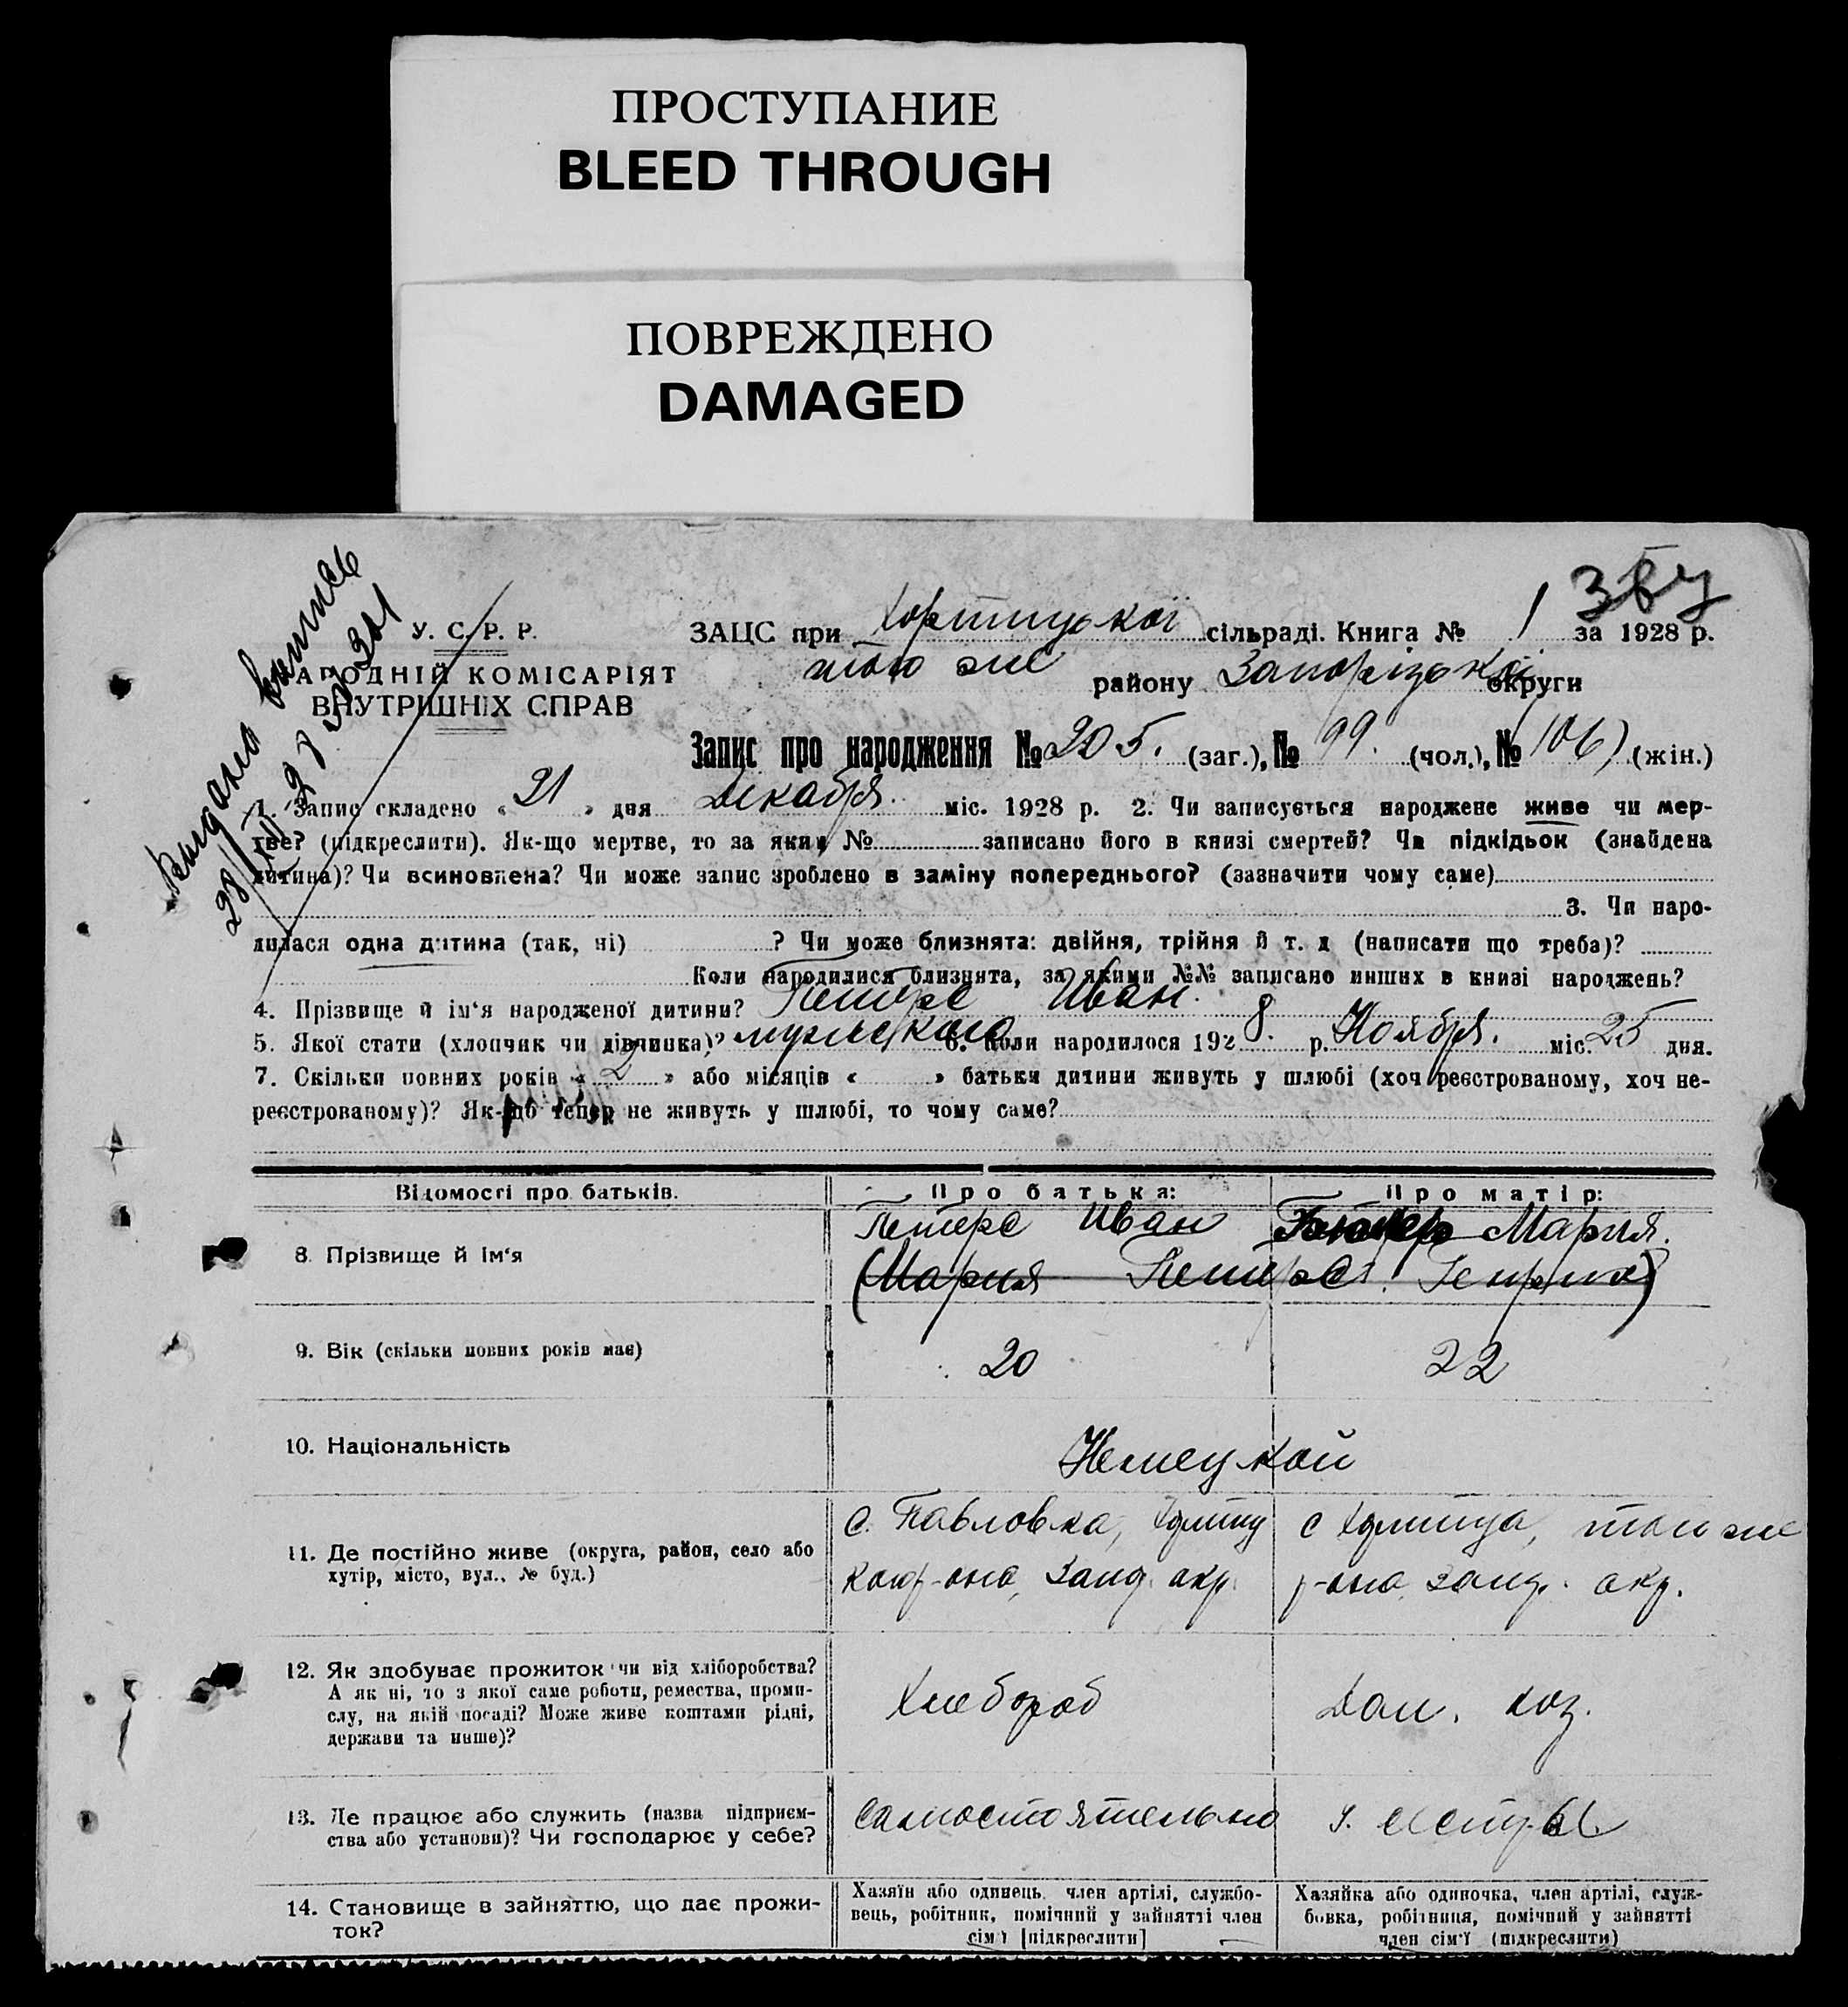 ПРОСТУПАНИЕ
BLEED THROUGH
ПОВРЕЖДЕНО
DAMAGED
Выдана выпись
У. С. Р. Р.
АРОДНІЙ КОМІСАРІЯТ
ВНУТРІШНІХ СПРАВ
ЗАЦС при Хортицької сільраді. Книга № 1 за 1928 р.
того же району Запорізької округи
Запис про народження № 205. (заг.), № 99. (чол.), № 106) (жін.)
1. Запис складено « 21 » дня Декабря. міс. 1928 р. 2. Чи записується народжене живе чи мер-
тве? (підкреслити). Як-що мертве, то за яким № записано його в книзі смертей? Чи підкідьок (знайдена
дитина)? Чи всиновлена? Чи може запис зроблено в заміну попереднього? (зазначити чому саме)
3. Чи наро-
дилася одна дитина (так, ні) ? Чи може близнята: двійня, трійня й т. д (написати що треба)?
Коли народилися близнята, за якими №№ записано инших в книзі народжень?
4. Прізвище й ім'я народженої дитини? Петерс Иван.
5. Якої стати (хлопчик чи дівчинка)? мужского 6. Коли народилося 192 8. р. Ноября. міс. 25 дня.
7. Скільки повних років « 2 » або місяців « » батьки дитини живуть у шлюбі (хоч реєстрованому, хоч не-
реєстрованому)? Як-що тепер не живуть у шлюбі, то чому саме?
Відомості про батьків.
Про батька:
Про матір:
8. Прізвище й ім'я
Петерс Иван
Мария.
(Мария Петерс. Генриха)
9. Вік (скільки повних років має)
20
22
10. Національність
Немецкой
11. Де постійно живе (округа, район, село або
хутір, місто, вул., № буд.)
с. Павловка, Хортиц
кого р-она, Запор. окр.
с Хортица, того же
р-она, Запор. окр.
12. Як здобуває прожиток чи від хліборобства?
А як ні, то з якої саме роботи, ремества, проми-
слу, на якій посаді? Може живе коштами рідні,
держави та инше)?
Хлебороб
Дом. хоз.
13. Де працює або служить (назва підприєм-
ства або установи)? Чи господарює у себе?
Самостоятельно
14. Становище в зайняттю, що дає прожи-
ток?
Хазяїн або одинець, член артілі, службо-
вець, робітник, помічний у зайнятті член
сім'ї [підкреслити]
Хазяйка або одиночка, член артілі, служ-
бовка, робітниця, помічний у зайнятті
член сім'ї (підкреслити)